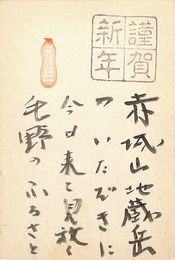 謹賀
新年
元旦
赤城山地蔵岳
のいたゞきに
今日来て見放く
毛野のふるさと